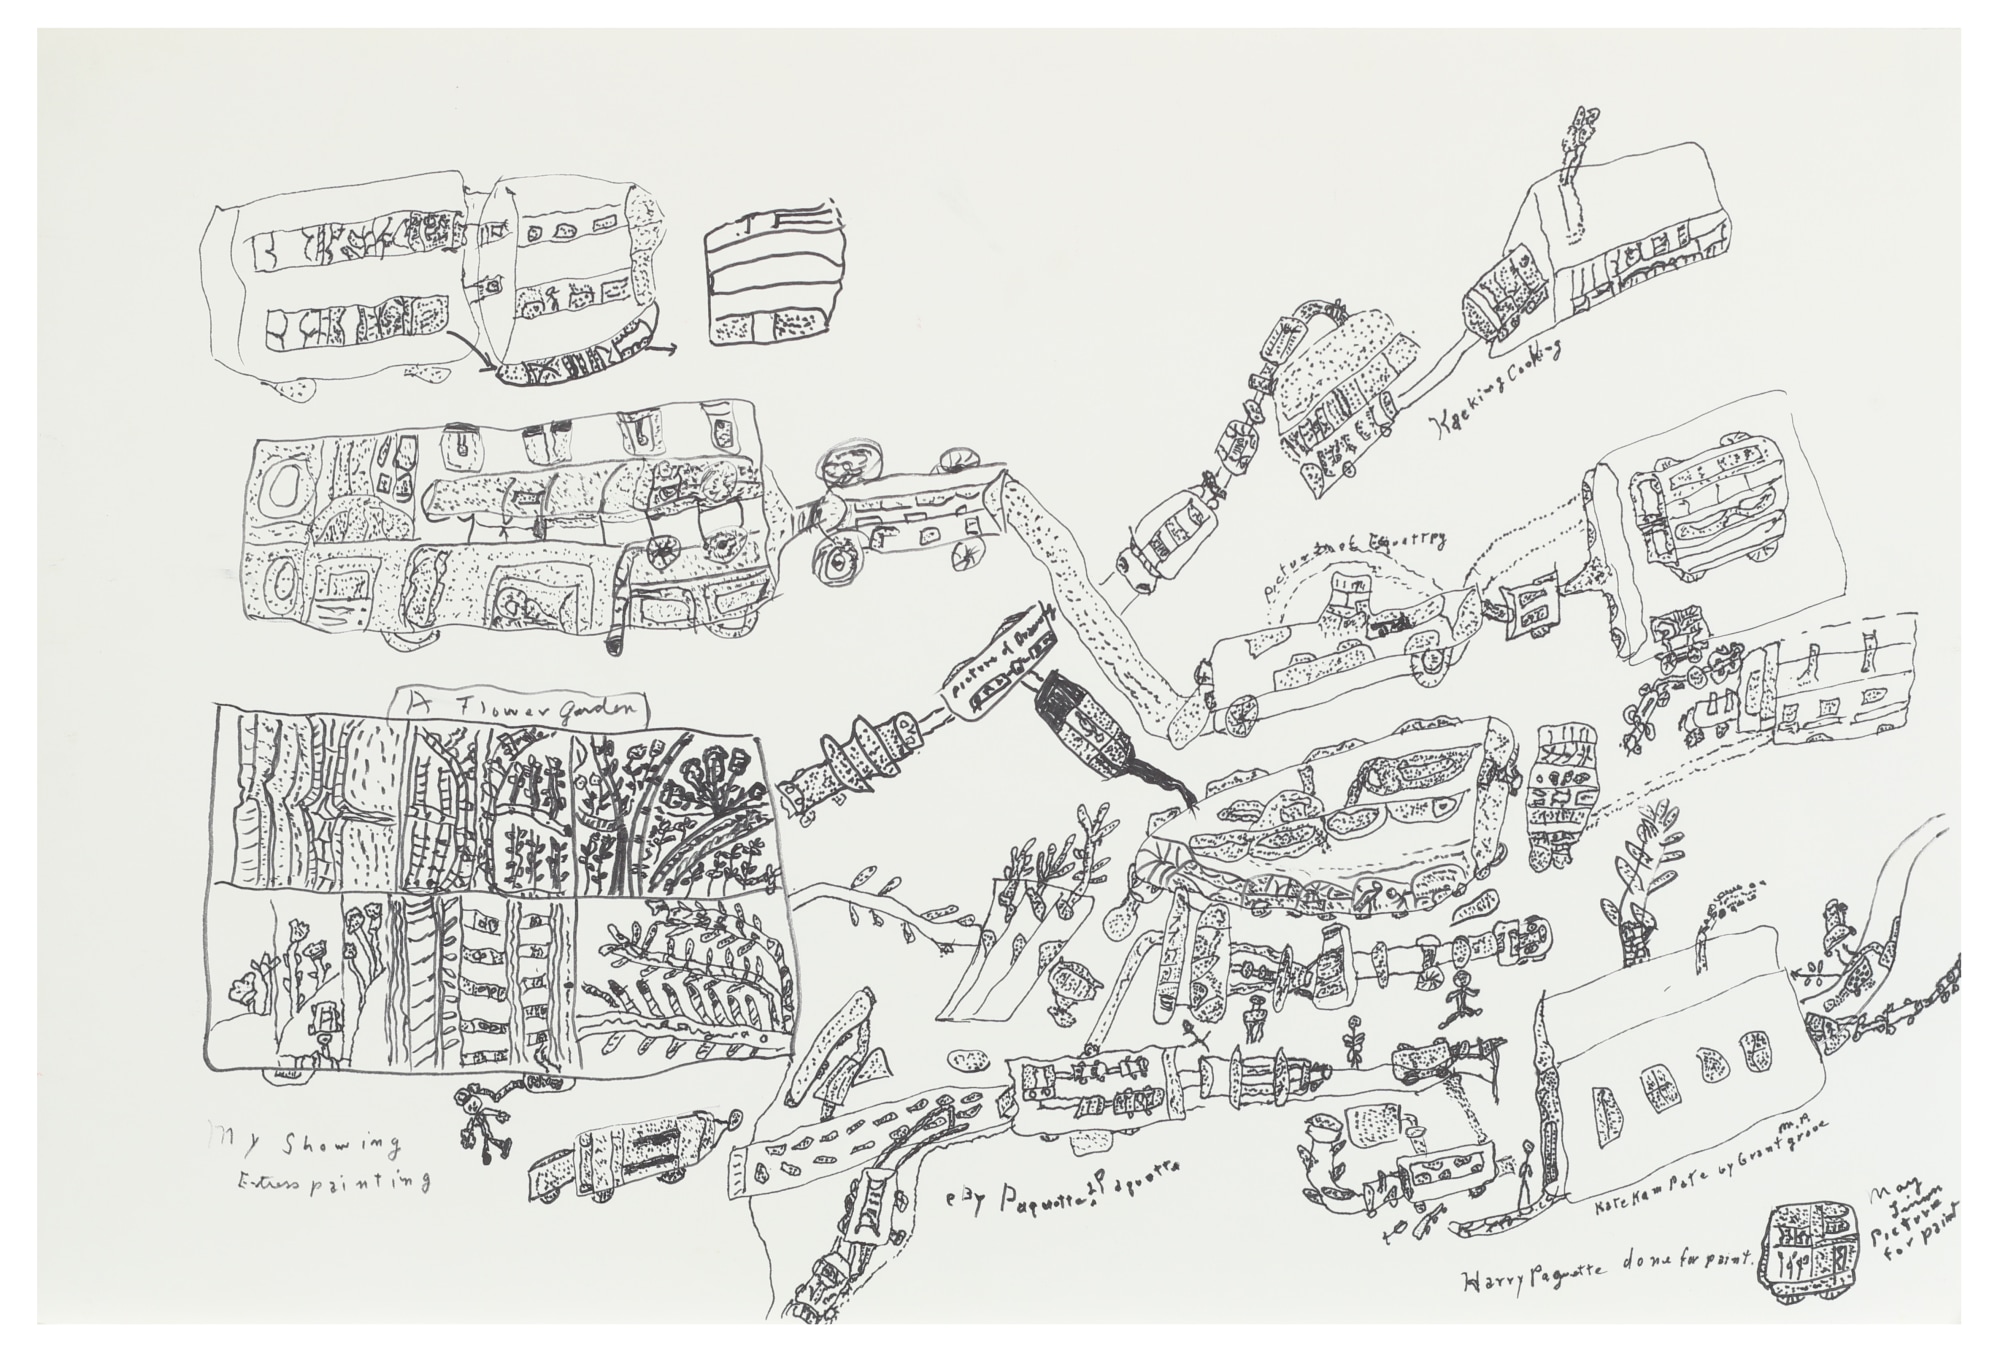 Kaeking Cooking
picture of Drawing
A Flower garden
My Showing
Estress painting
eBy Paquotte. Paquotte
M.A.
KateKamPate by Grantgrove
Harry Paquette done for paint.
May
Picture
for paint